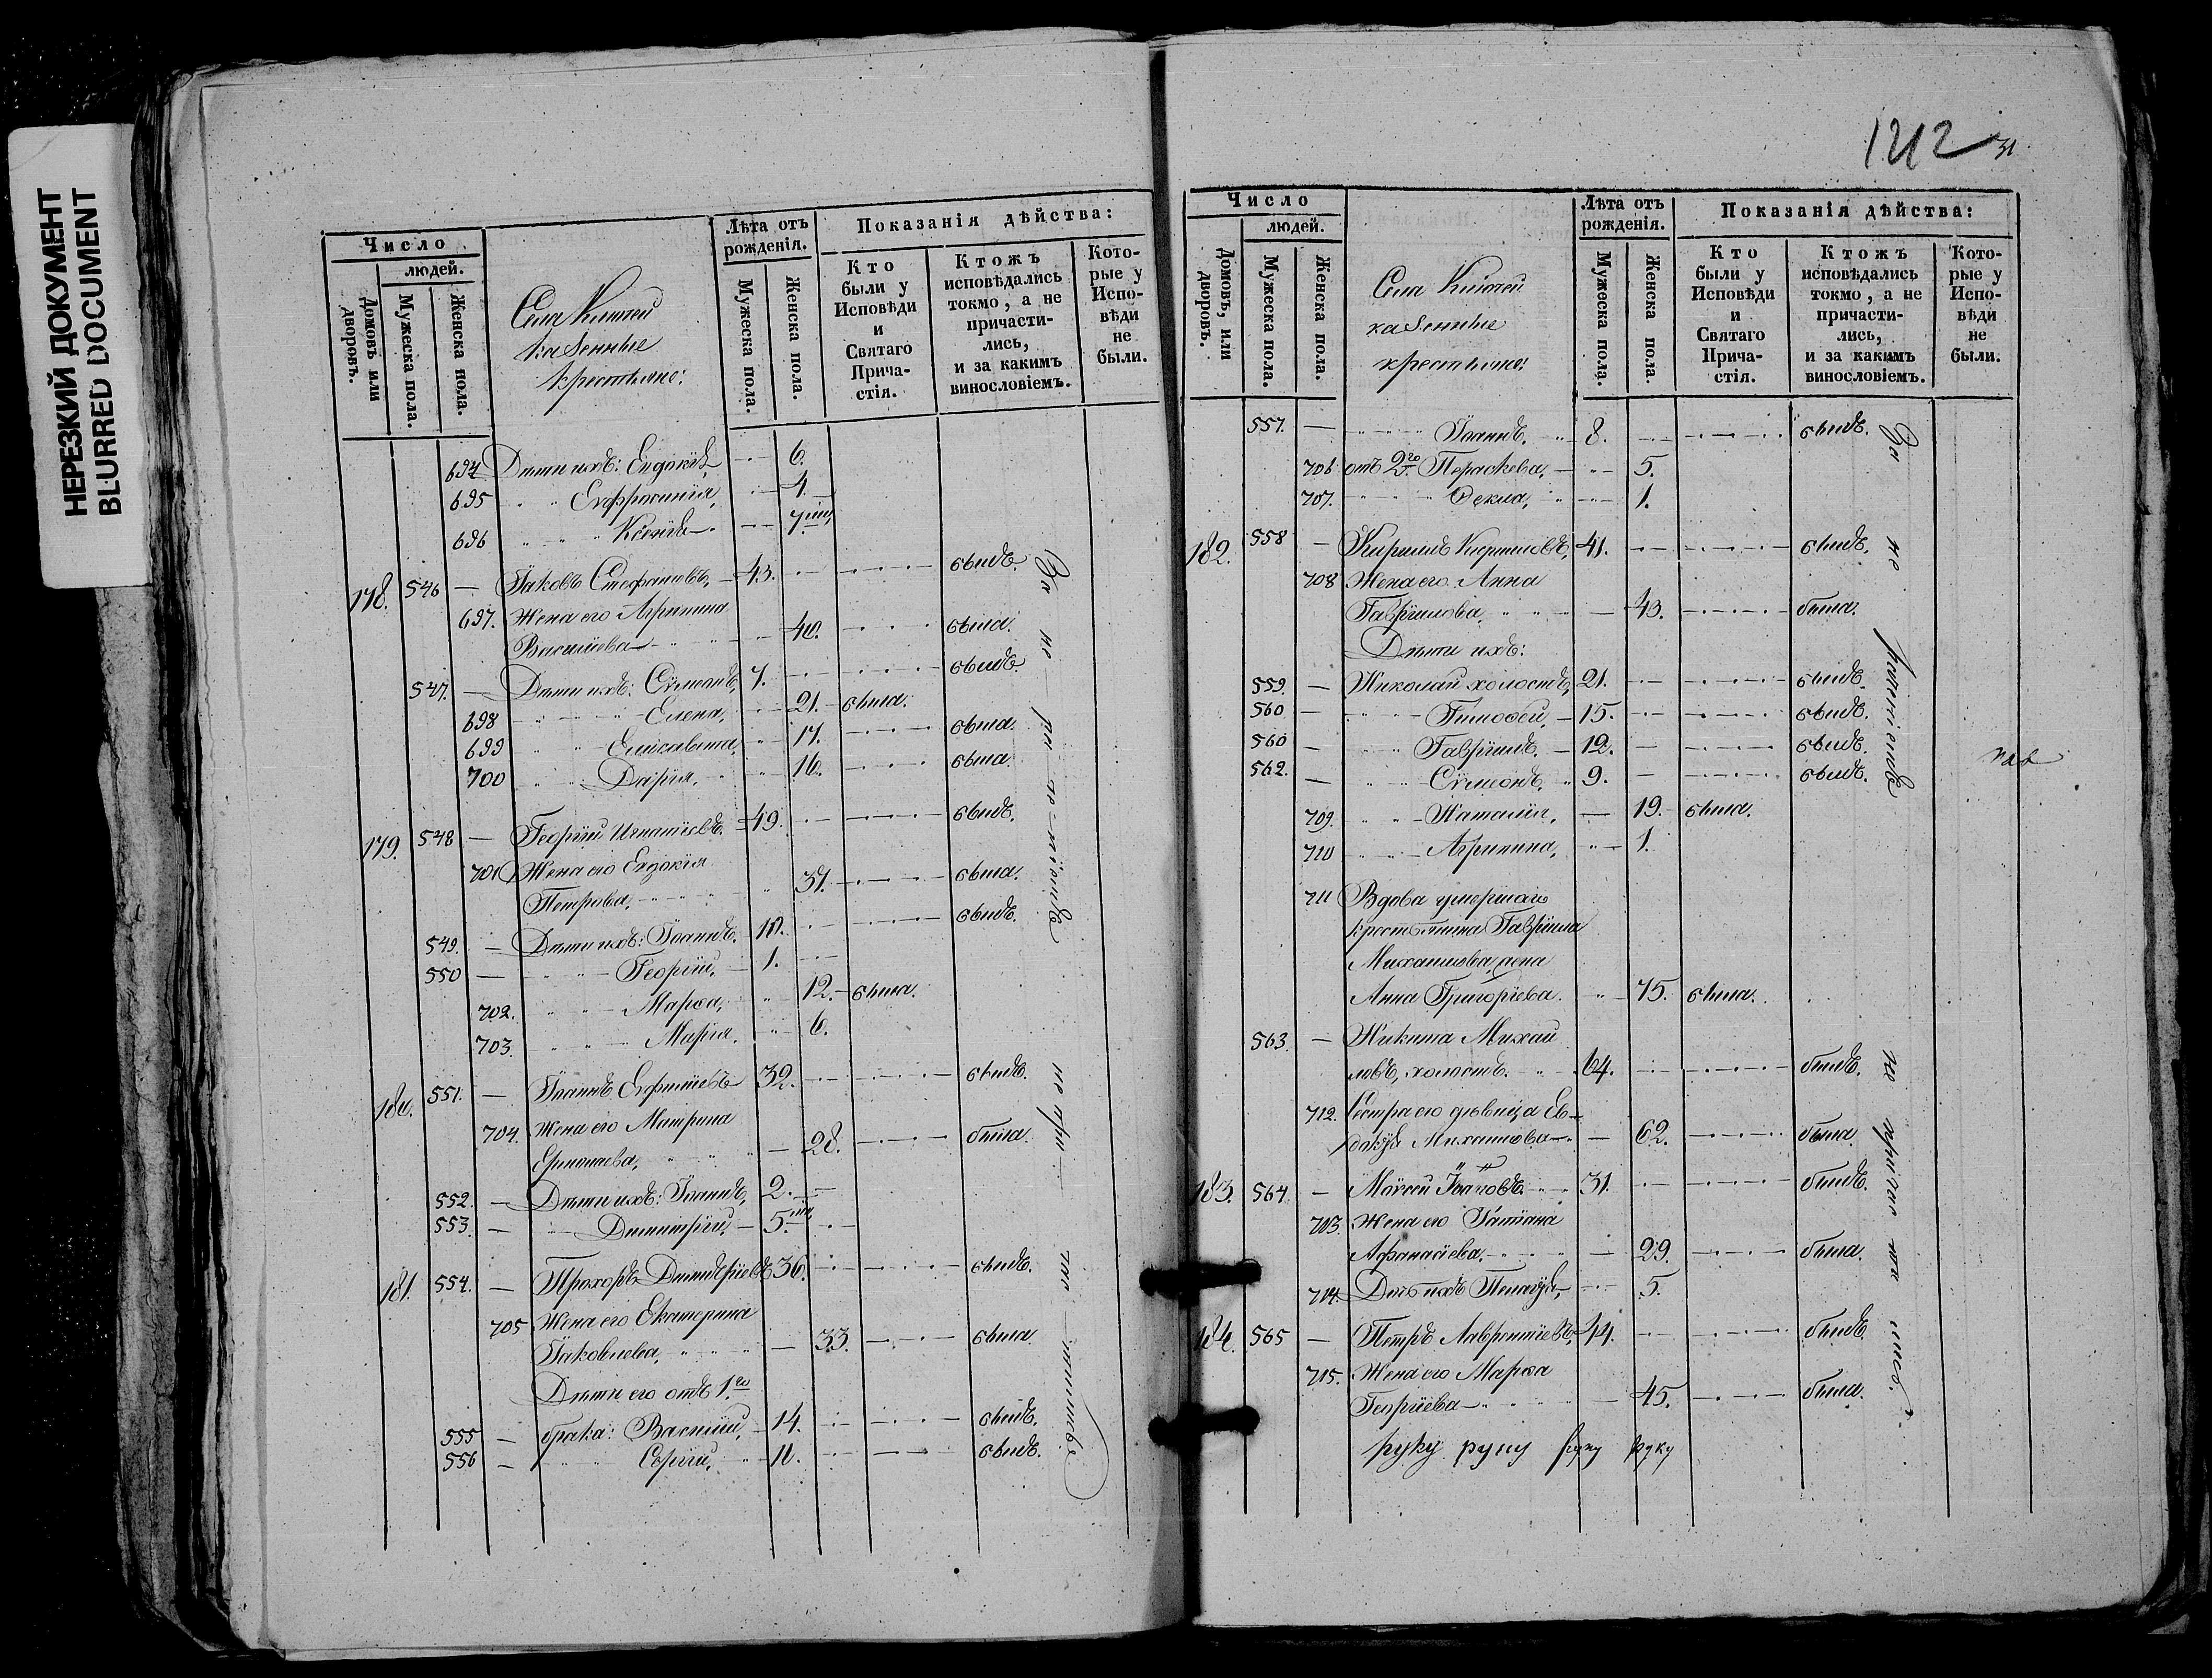 НЕРЕЗКИЙ ДОКУМЕНТ
BLURRED DOCUMENT
Число
людей.
Домовъ или дворовъ.
Мужеска пола.
Женска пола.
Села
казенные
крестьяне:
Лѣта отъ рожденія.
Мужеска пола.
Женска пола.
Показанія дѣйства:
Кто были у Исповѣди и Святаго Прича-стія.
Ктожъ исповѣдались токмо, а не причасти-лись, и за какимъ винословіемъ.
Кото-рые у Испо-вѣди не были.
694 Дѣти ихъ: Евдокія 6.
695 Евфросинія, 4.
696 Ксенія 7
178. 546 — Іаковъ Стефановъ, 43. былъ.
697. Жена его Агрипина
Василіева 40. была.
547. — Дѣти ихъ: Сѵмеонъ, 7. былъ.
698 Елена, 21. была.
699 Елисавета, 17. была.
700 Дарія, 16. была.
179. 548 — Георгій Игнатіевъ. 49. былъ.
701 Жена его Евдокія
Петрова, 37. была.
549. — Дѣти ихъ: Іоаннъ. 10. былъ.
550 — Георгій, 1.
702. Марѳа, 12. была.
703. Марія. 6.
180. 551. — Іоаннъ Евфиміевъ 32. былъ.
704. Жена его Матрина
Ермолаева, 28. была.
552. — Дѣти ихъ: Іоаннъ, 2.
553. — Димитрій, 5.
181. 554. — Прохоръ Димитріевъ 36. былъ.
705 Жена его Екатерина
Іаковлева, 33. была.
Дѣти его отъ 1.го
555 — брака: Василій, 14. былъ.
556 — Сергій, 11. былъ.
За не ра че ніемъ
не при
1212 31
Число
людей.
Домовъ, или дворовъ.
Мужеска пола.
Женска пола.
Села
казенные
крестьяне:
Лѣта отъ рожденія.
Мужеска пола.
Женска пола.
Показанія дѣйства:
Кто были у Исповѣди и Святаго Прича-стія.
Ктожъ исповѣдались токмо, а не причасти-лись, и за какимъ винословіемъ.
Кото-рые у Испо-вѣди не были.
557. — Іоаннъ. 8. былъ.
706 отъ 2го Пераскева, 5.
707. Ѳекла, 1.
182. 558 — Кирилъ Кириловъ, 41. былъ.
708 Жена его Анна
Гавріилова, 43. была.
Дѣти ихъ:
559. — Николай холостъ, 21. былъ.
560 — Тимоѳей, 15. былъ.
560 — Гавріилъ. 12. былъ.
562. — Сѵмеонъ, 9. былъ.
709. Наталія, 19. была.
710 Агрипина, 1.
711 Вдова умершаго
крестьянина Гавріила
Михаилова, жена
Анна Григоріева. 75. была.
563. — Никита Михаи
ловъ, холостъ. 64. былъ.
712. Сестра его дѣвица Ев-
докія Михаилова 62. была.
183. 564. — Моѵсей 31. былъ.
703. Жена его Татіана
Афанасіева, 29. была.
714. Дочь ихъ Пелагія, 5.
184. 565 — Петръ Лаврентіевъ, 44. былъ.
715. Жена его Марѳа
Георгіева 45. была.
руку руку руку руку
За не раченіемъ
не причас